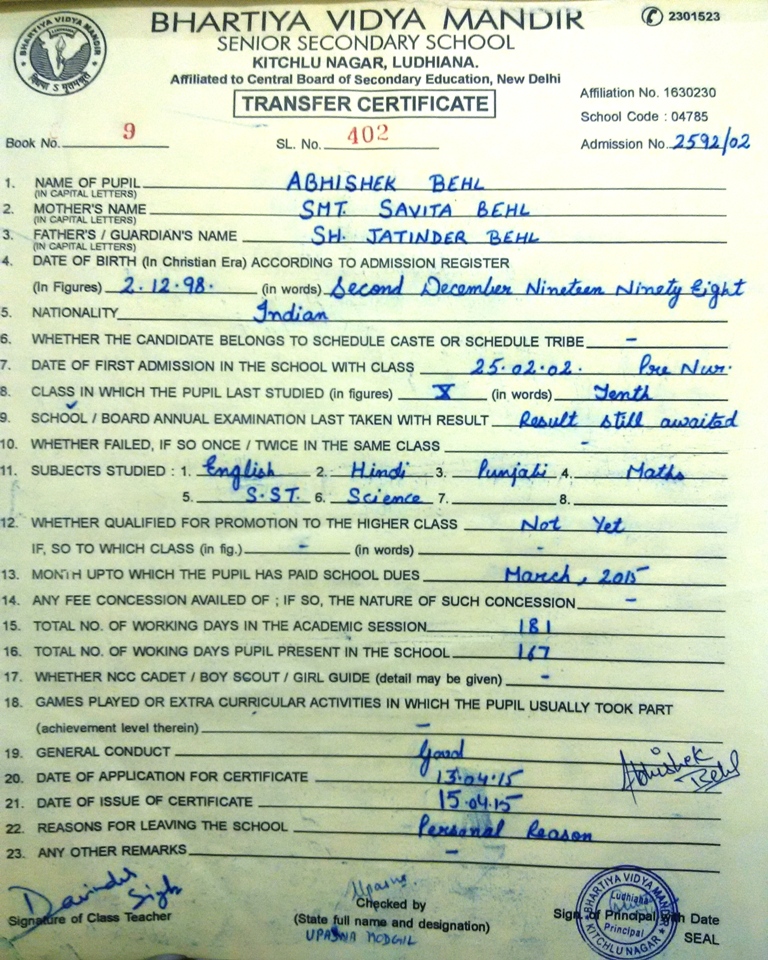 BHARTIYA VIDYA MANDIR
BHARTIYA VIDYA MANDIR 2301523
SENIOR SECONDARY SCHOOL
KITCHLU NAGAR, LUDHIANA.
Affiliated to Central Board of Secondary Education, New Delhi
TRANSFER CERTIFICATE
Affiliation No. 1630230
School Code : 04785
Book No. 9 SL. No. 402 Admission No. 2592/02
1. NAME OF PUPIL ABHISHEK BEHL
(IN CAPITAL LETTERS)
2. MOTHER'S NAME SMT. SAVITA BEHL
(IN CAPITAL LETTERS)
3. FATHER'S / GUARDIAN'S NAME SH. JATINDER BEHL
(IN CAPITAL LETTERS)
4. DATE OF BIRTH (In Christian Era) ACCORDING TO ADMISSION REGISTER
(In Figures) 2.12.98. (in words) Second December Nineteen Ninety Eight
5. NATIONALITY Indian
6. WHETHER THE CANDIDATE BELONGS TO SCHEDULE CASTE OR SCHEDULE TRIBE -
7. DATE OF FIRST ADMISSION IN THE SCHOOL WITH CLASS 25.02.02. Pre Nur.
8. CLASS IN WHICH THE PUPIL LAST STUDIED (in figures) X (in words) Tenth
9. SCHOOL / BOARD ANNUAL EXAMINATION LAST TAKEN WITH RESULT Result still awaited
10. WHETHER FAILED, IF SO ONCE / TWICE IN THE SAME CLASS -
11. SUBJECTS STUDIED : 1. English 2. Hindi 3. Punjabi 4. Maths
5. S.ST. 6. Science 7. 8.
12. WHETHER QUALIFIED FOR PROMOTION TO THE HIGHER CLASS Not Yet
IF, SO TO WHICH CLASS (in fig.) - (in words) -
13. MONTH UPTO WHICH THE PUPIL HAS PAID SCHOOL DUES March, 2015
14. ANY FEE CONCESSION AVAILED OF ; IF SO, THE NATURE OF SUCH CONCESSION -
15. TOTAL NO. OF WORKING DAYS IN THE ACADEMIC SESSION 181
16. TOTAL NO. OF WOKING DAYS PUPIL PRESENT IN THE SCHOOL 167
17. WHETHER NCC CADET / BOY SCOUT / GIRL GUIDE (detail may be given) -
18. GAMES PLAYED OR EXTRA CURRICULAR ACTIVITIES IN WHICH THE PUPIL USUALLY TOOK PART
(achievement level therein) -
19. GENERAL CONDUCT Good
20. DATE OF APPLICATION FOR CERTIFICATE 13.04.15
Abhishek Behl
21. DATE OF ISSUE OF CERTIFICATE 15.04.15
22. REASONS FOR LEAVING THE SCHOOL Personal Reason
23. ANY OTHER REMARKS -
Davinder Singh
Upasna
Signature of Class Teacher
Checked by
(State full name and designation)
UPASNA MODGIL
BHARTIYA VIDYA MANDIR
Ludhiana
Principal
KITCHLU NAGAR
Sign. of Principal with Date
SEAL